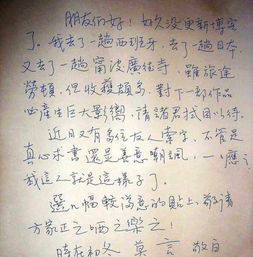 朋友们好！好久没更新博客
了。我去了一趟西班牙，去了一趟日本，
又去了一趟甯波廣佳寺，雖旅途
勞頓，但收穫頗多，對下一部作品
必產生巨大影嚮，請諸君拭目以待。
近日又有多位友人索字，不管是
真心求書還是善意嘲諷，一一應之，
我這人就是這樣子了。
選几幅較滿意的貼上，敬請
方家正之哂之樂之！
時在初冬 莫言 敬白